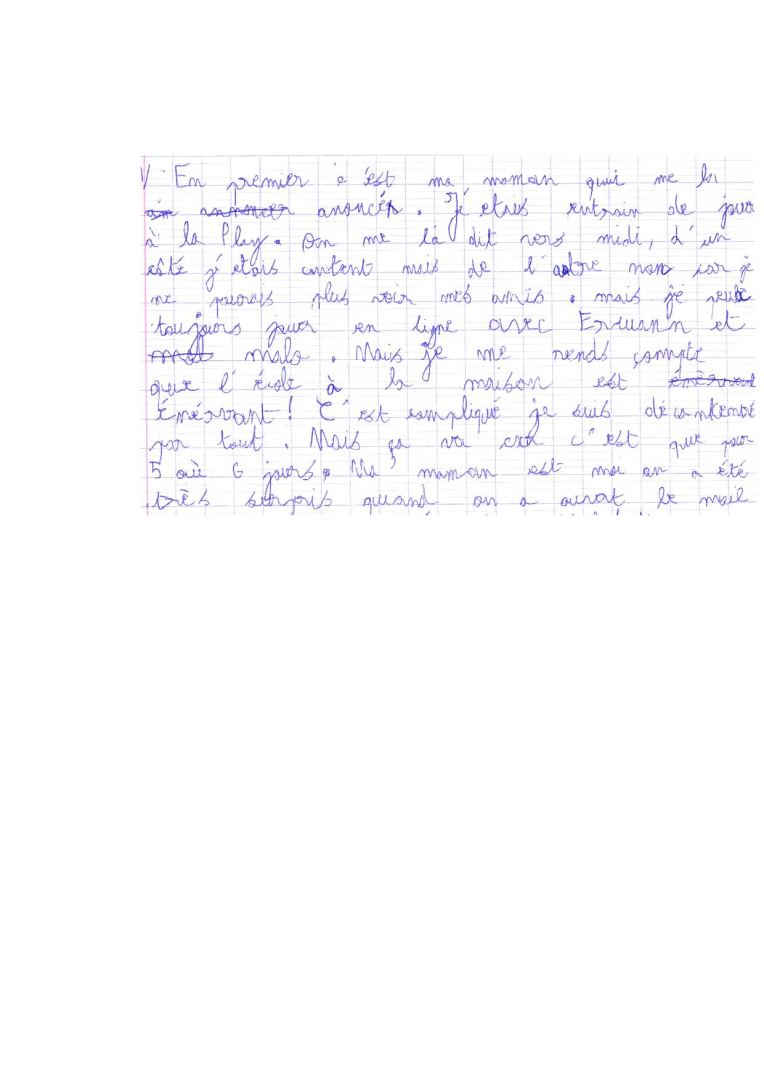 1/ En premier c'est ma maman quui me la
anoncér. J'étais entrain de jouer
à la Play. On me la dit vers midi, d'un
côté j'étais content mais de l'autre non car je
ne pouvais plus voir mes amis. mais je peux
toujours jouer en ligne avec Erwann et
malo. Mais je me rends compte
que l'école à la maison est
énérvant! C'est compliqué je suis
par tout. Mais ça va car c'est que pour
5 où 6 jours. Ma maman est moi on a été
très surpris quand on a ouvert le mail